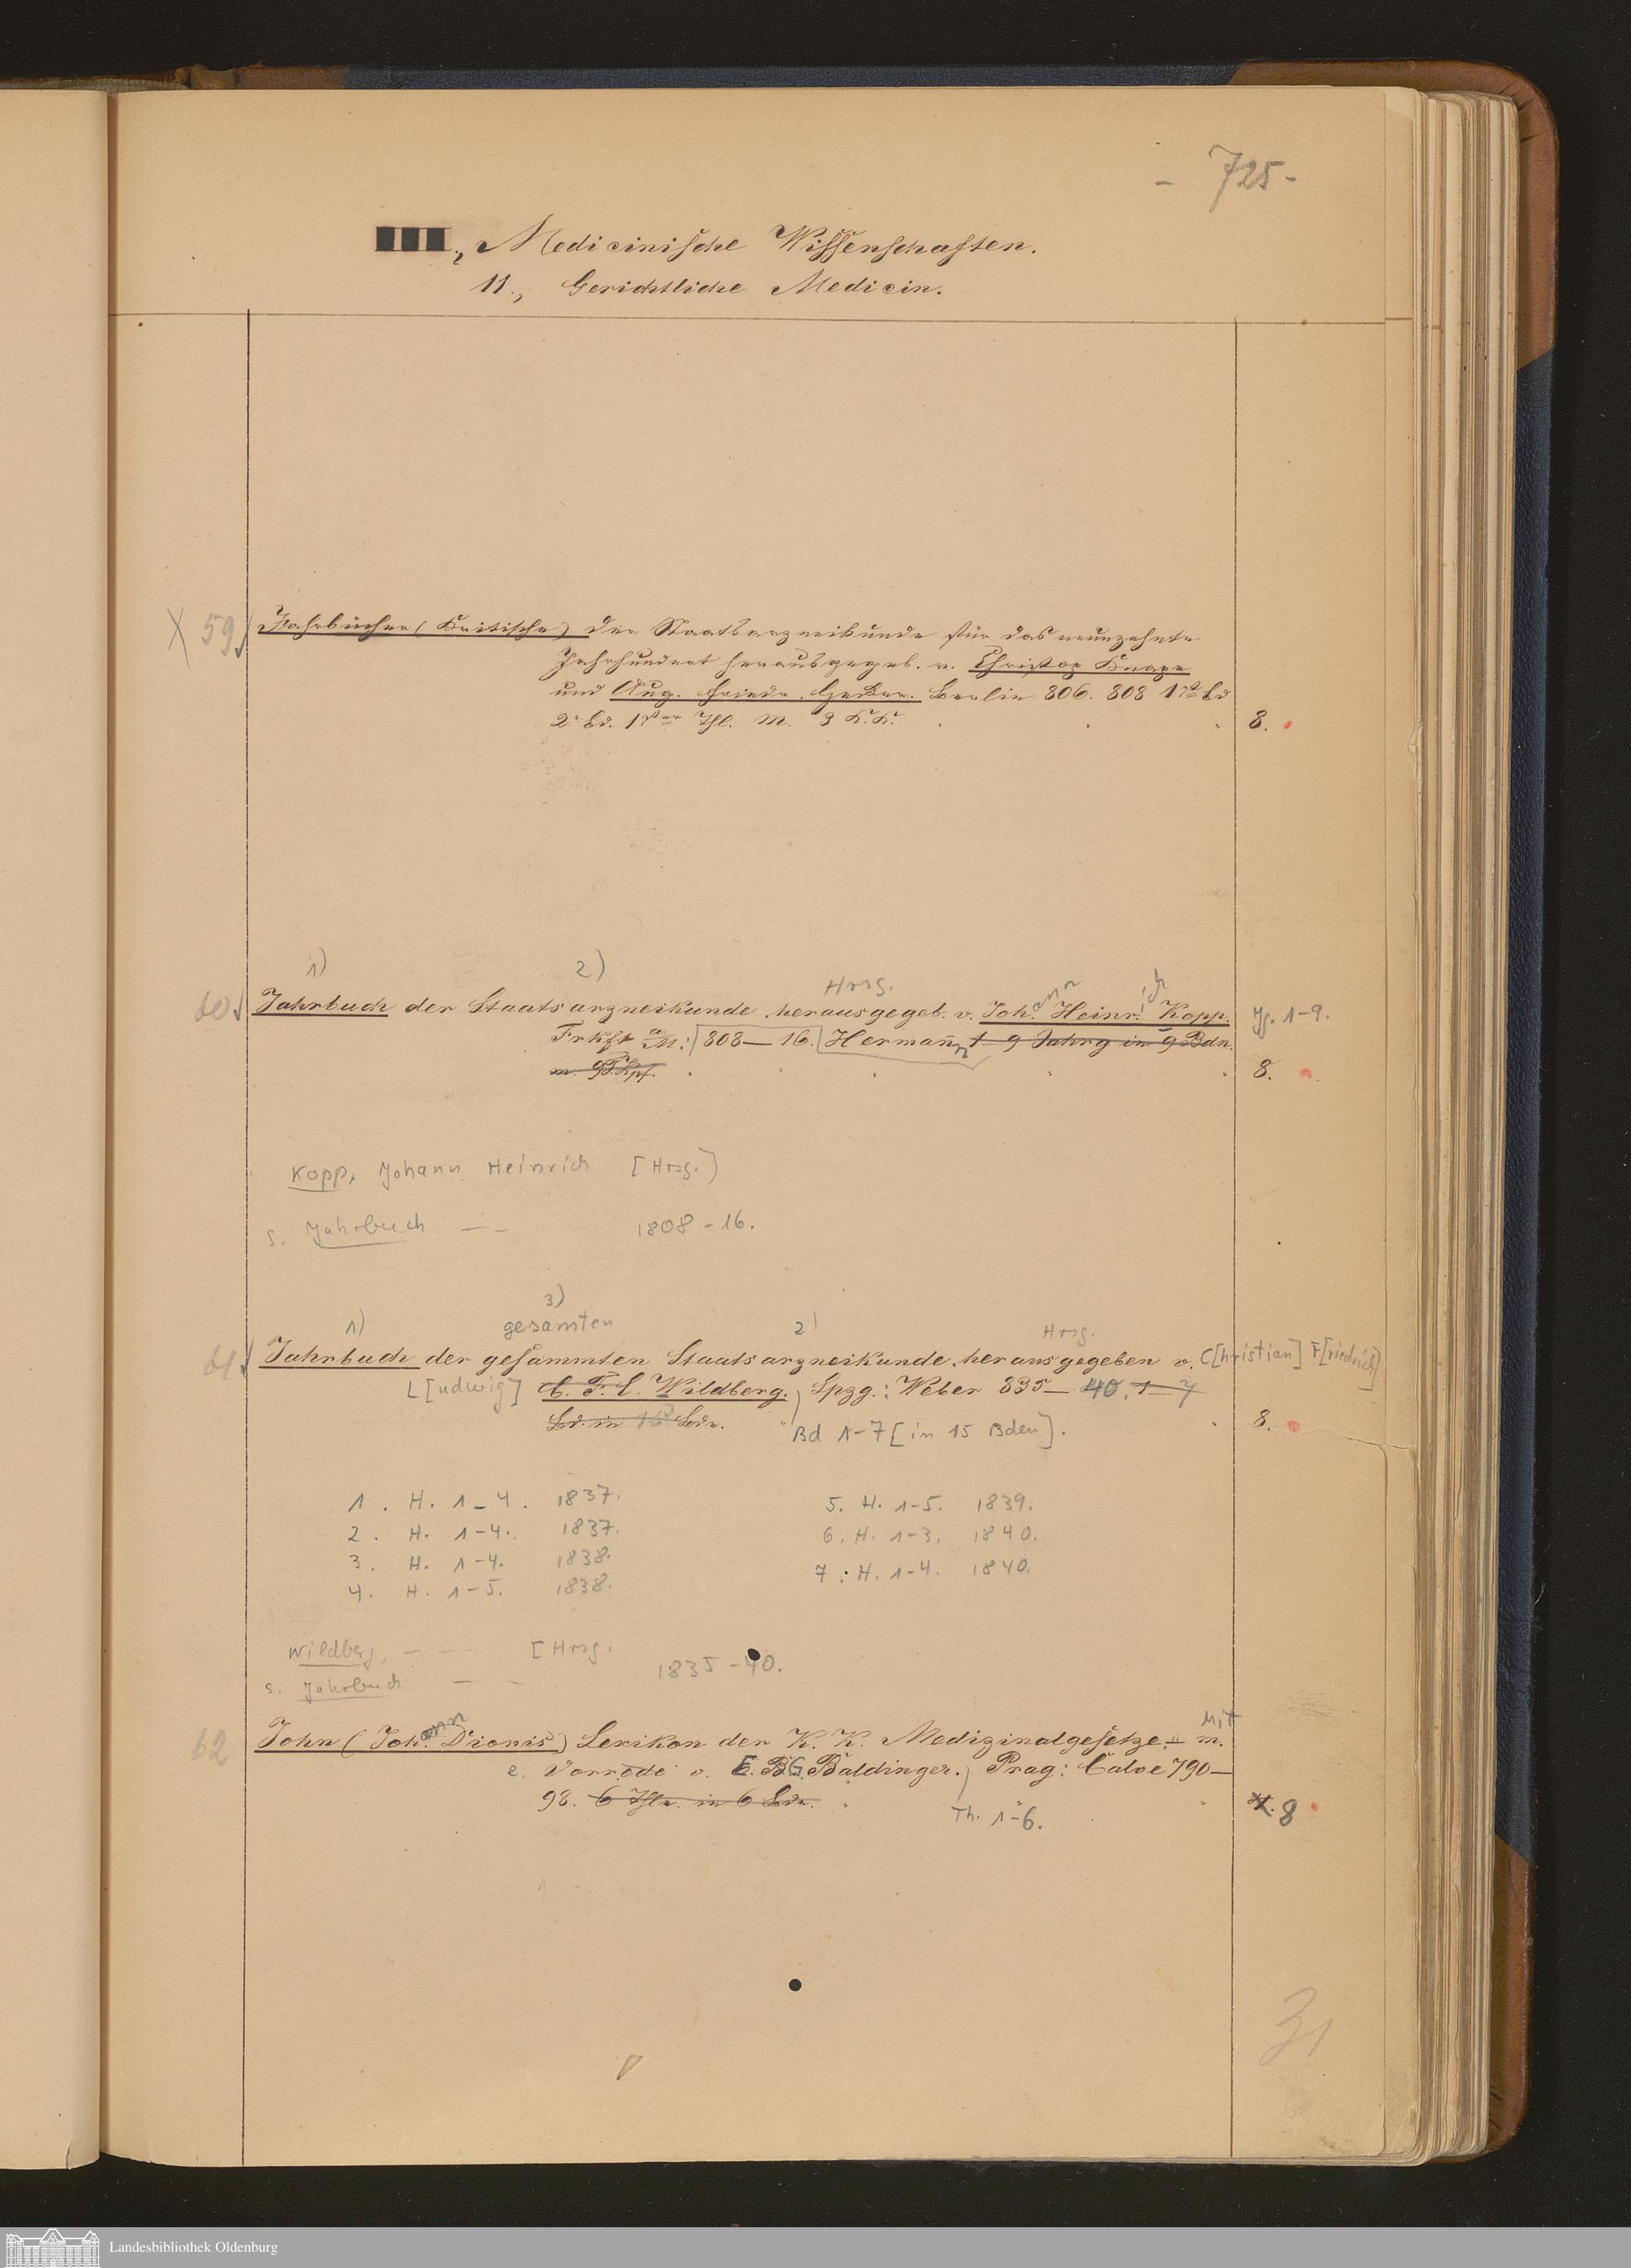 - 725 -
III., Medicinische Wissenschaften.
11., Gerichtliche Medicin.
X 59
Jahrbücher (Kritische) der Staatsarzneikunde für das neunzehnte
Jahrhundert herausgegeb. v. Christop Knape
und Aug. Friedr. Hecker. Berlin 806. 808 1ster Bd
2r Bd. 1ster Thl. m. 3 K.K. 8.
1) 2) Hrsg.
60 Jahrbuch der Staatsarzneikunde, herausgegeb. v. Johann Heinrich Kopp. Jg. 1-9.
Frkft a/M: 808–16. Hermann 1–9 Jahrg in 9 Bdn.
m. 9 T.Kpf. 8.
Kopp, Johann Heinrich [Hrsg.]
s. Jahrbuch — — 1808-16.
3)
1) gesamten 2) Hrsg.
61 Jahrbuch der gesammten Staatsarzneikunde, herausgegeben v. C[hristian] F[riedrich]
L[udwig] C. F. L. Wildberg. Lpzg.: Weber 835–40. 1–7
Bd. in 15 Bdn. Bd 1-7 [in 15 Bden]. 8.
1. H. 1-4. 1837. 5. H. 1-5. 1839.
2. H. 1-4. 1837. 6. H. 1-3. 1840.
3. H. 1-4. 1838. 7: H. 1-4. 1840.
4. H. 1-5. 1838.
Wildberg, — — [Hrsg.
s. Jahrbuch — — 1835-40.
Mit
62 John (Johann Dionis) Lexikon der K. K. Medizinalgesetze. m.
e. Vorrede v. E. G. Baldinger. Prag: Calve 790–
98. 6 Thle. in 6 Bdn. Th. 1-6. 8
31
Landesbibliothek Oldenburg